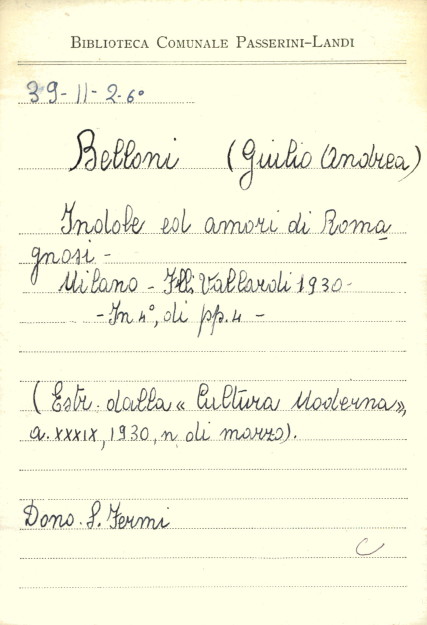 BIBLIOTECA COMUNALE PASSERINI-LANDI
39-11-2-6°
Belloni (Giulio Andrea)
Indole ed amori di Roma
gnosi -
Milano - F.lli Vallardi 1930-
- In 4°, di pp. 4 -
(Estr. dalla « Cultura Moderna»,
a. XXXIX, 1930, n. di marzo).
Dono. S. Fermi
C